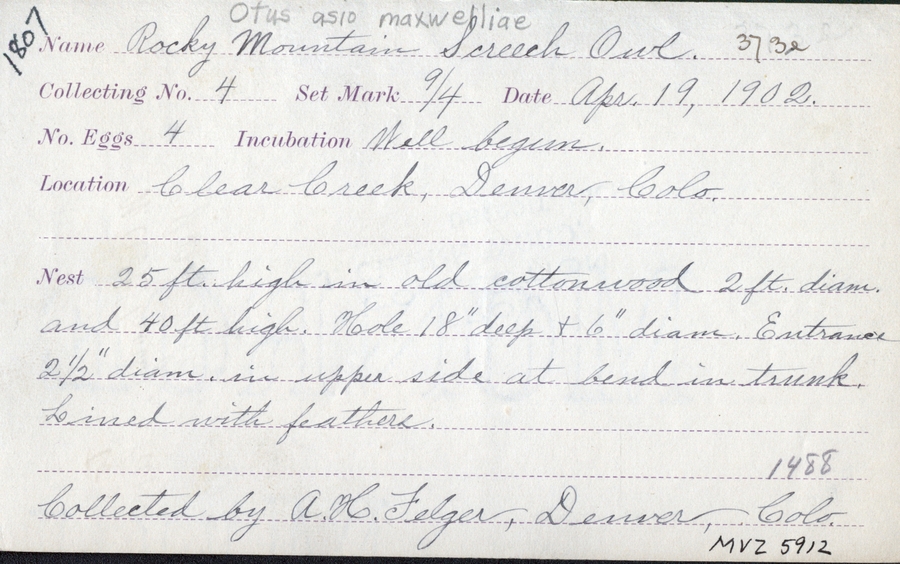 Otus asio maxwelliae
1807
Name Rocky Mountain Screech Owl. 373a
Collecting No. 4 Set Mark 9/4 Date Apr. 19, 1902.
No. Eggs 4 Incubation Well begun.
Location Clear Creek, Denver, Colo.
Nest 25 ft. high in old cottonwood 2 ft. diam.
and 40 ft high. Hole 18" deep & 6" diam. Entrance
2 1/2" diam. in upper side at bend in trunk.
Lined with feathers.
1488
Collected by A. H. Felger, Denver, Colo.
MVZ 5912